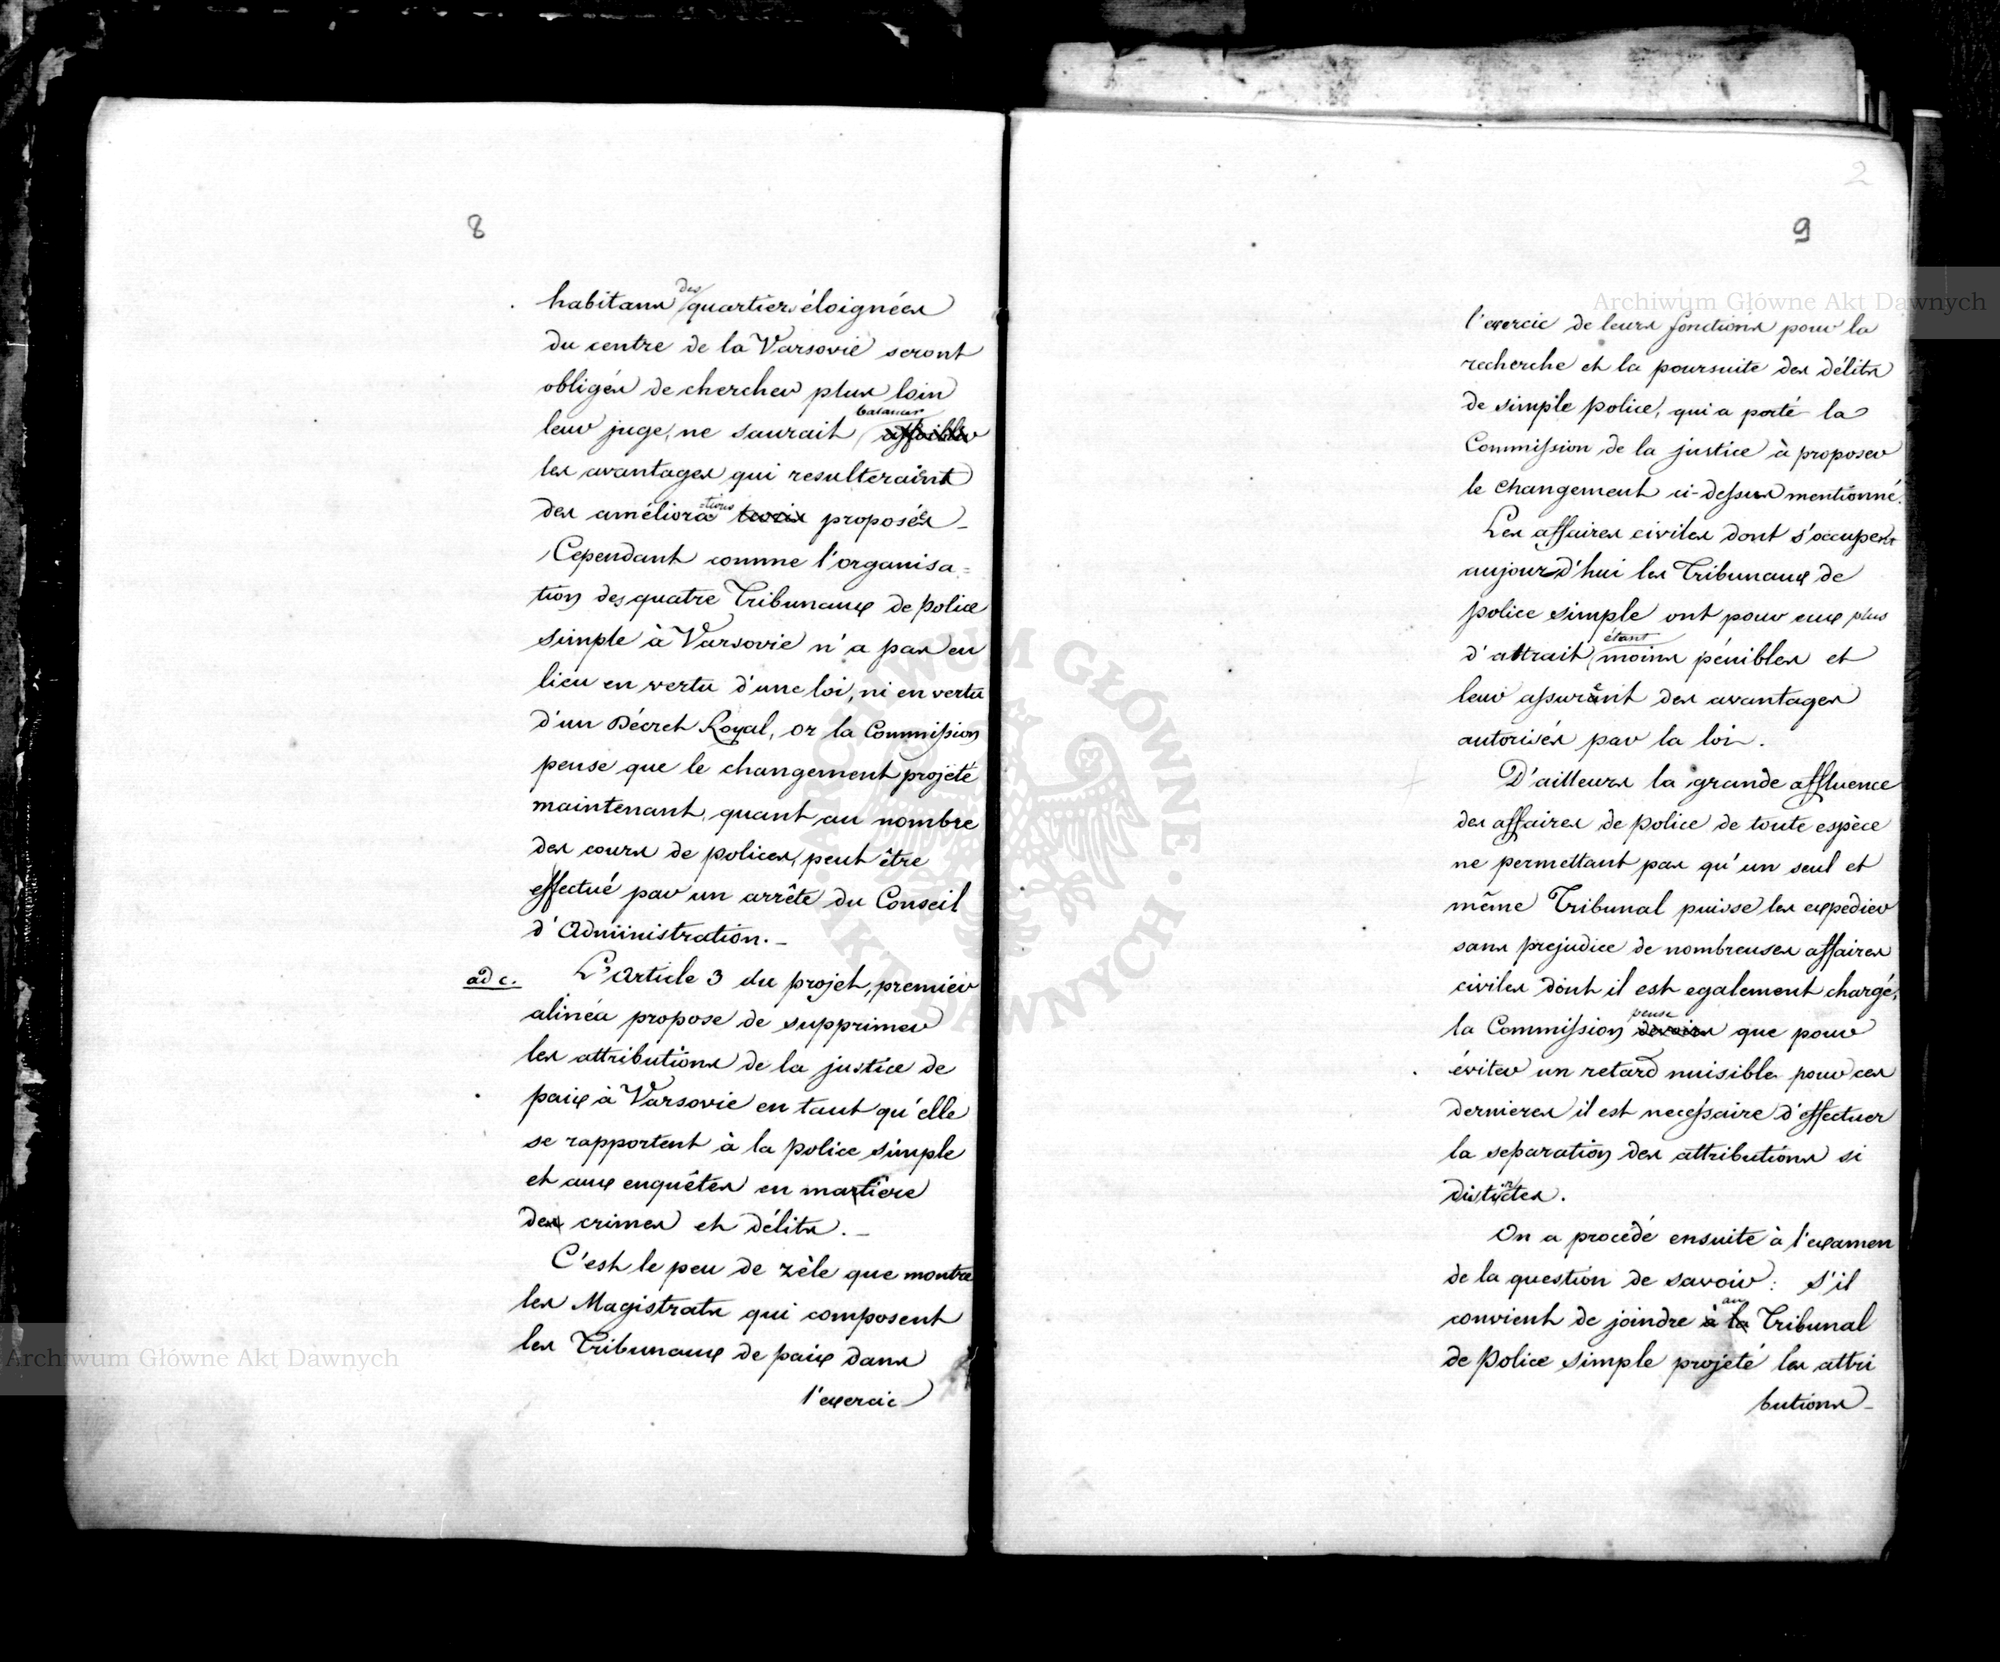 8
habitans des quartiers éloignées
du centre de la Varsovie seront
obligés de chercher plus loin
leur juge, ne saurait balancer affaiblir
les avantages qui resulteraient
des améliorations proposées –
Cependant comme l'organisa=
tion des quatre Tribunaux de police
simple à Varsovie n'a pas eu
lieu en vertu d'une loi, ni en vertu
d'un Décret Royal, or la Commission
pense que le changement projeté
maintenant, quant au nombre
des cours de polices, peut être
effectué par un arrête du Conseil
d'Administration. –
ad c. L'Article 3 du projet, premier
alinéa propose de supprimer
les attributions de la justice de
paix à Varsovie en tant qu'elle
se rapportent à la police simple
et aux enquêtes en matiere
des crimes et délits. –
C'est le peu de zèle que montre
les Magistrats qui composent
les Tribunaux de paix dans
l'exercic
2
9
l'exercic de leurs fonctions pour la
recherche et la poursuite des délits
de simple police, qui a porté la
Commission de la justice à proposer
le changement ci-dessus mentionné.
Les affaires civiles dont s'occupent
aujourd'hui les Tribunaux de
police simple ont pour eux plus
d'attrait, étant moins pénibles et
leur assurent des avantages
autorisés par la loi.
D'ailleurs la grande affluence
des affaires de police de toute espèce
ne permettant pas qu'un seul et
même Tribunal puisse les expedier
sans prejudice de nombreuses affaires
civiles dont il est egalement chargé,
la Commission pense devoir que pour
éviter un retard nuisible pour ces
dernieres il est necessaire d'effectuer
la separation des attributions si
distinctes.
On a procédé ensuite à l'examen
de la question de savoir: S'il
convient de joindre à la au Tribunal
de Police simple projeté les attri
butions –
Archiwum Główne Akt Dawnych
Archiwum Główne Akt Dawnych
ARCHIWUM GŁÓWNE AKT DAWNYCH